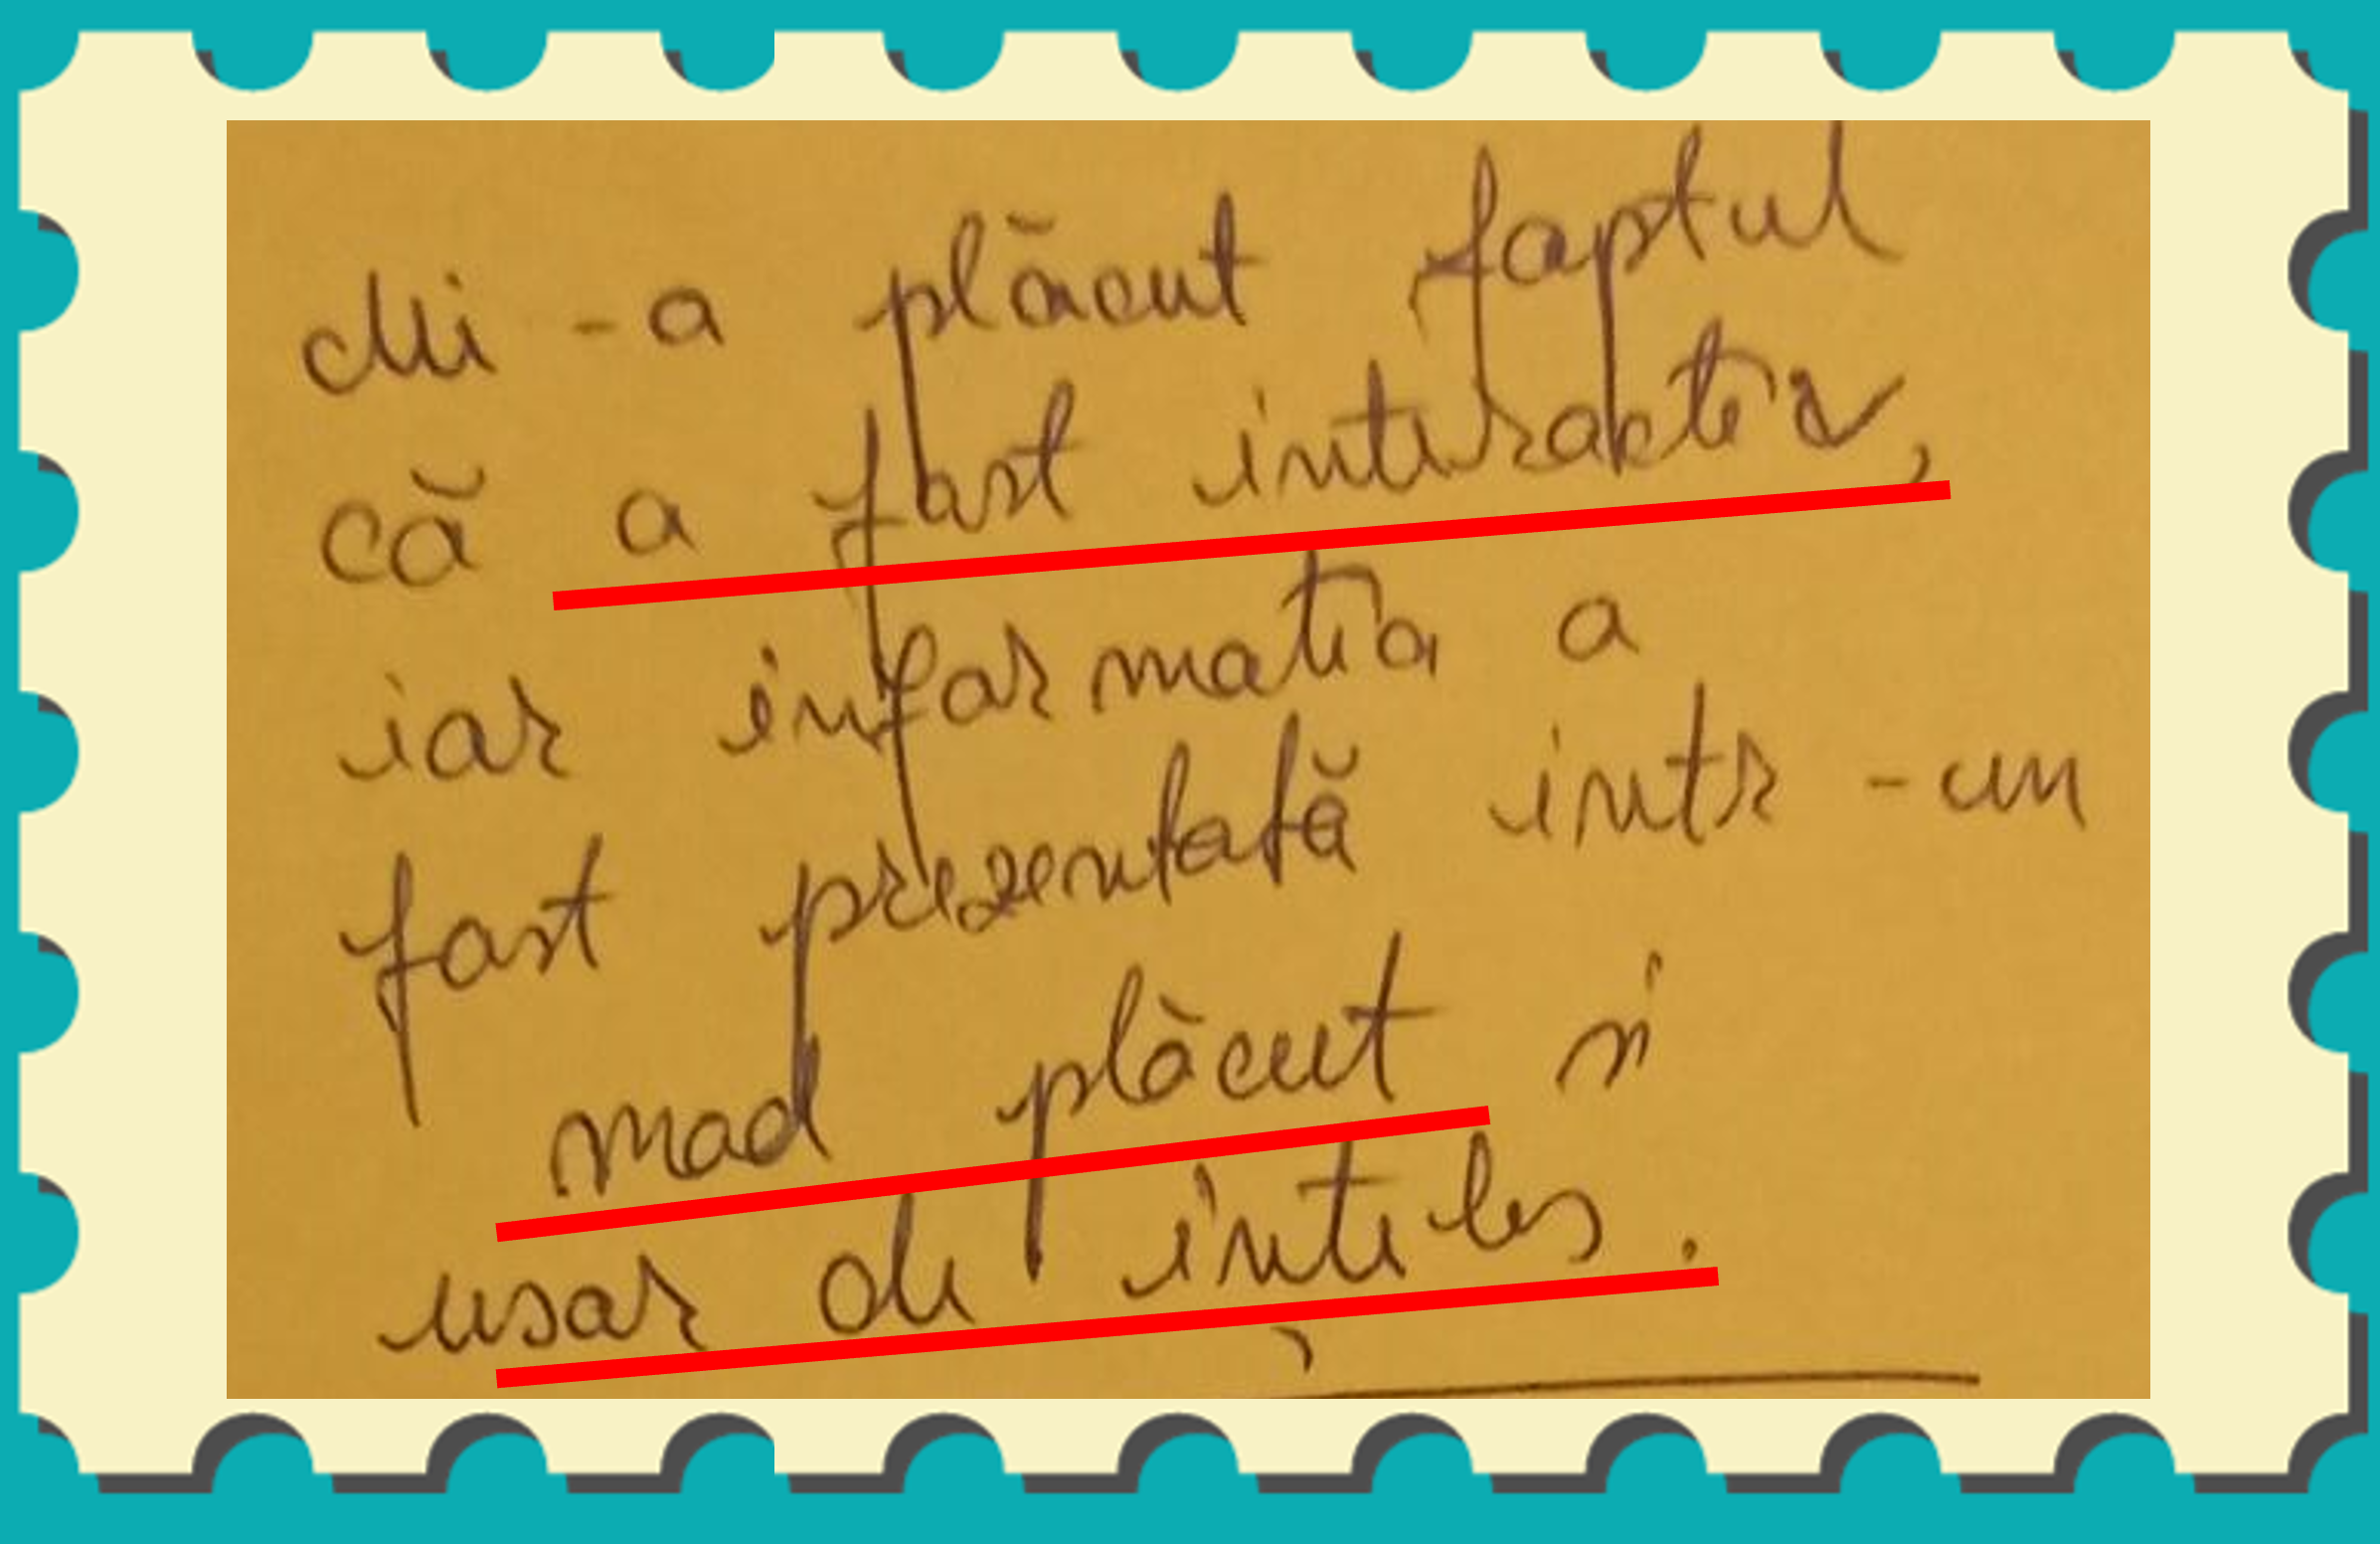 Mi-a plăcut faptul
că a fost interactiv,
iar informatia a
fost prezentată intr-un
mod plăcut și
usor de inteles.